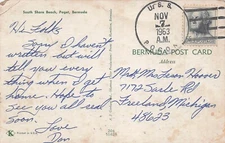 South Shore Beach, Paget, Bermuda
Hi Folks
Sorry I haven't
written but will
tell you every
thing when I get
home. Hope to
see you all real
soon.
Love
Don
U. S. S.
NOV
7
1963
A.M.
BERMUDA POST CARD
Address
Mr & Mrs Leon Hoover
7172 Sarle Rd
Freeland, Michigan
48623